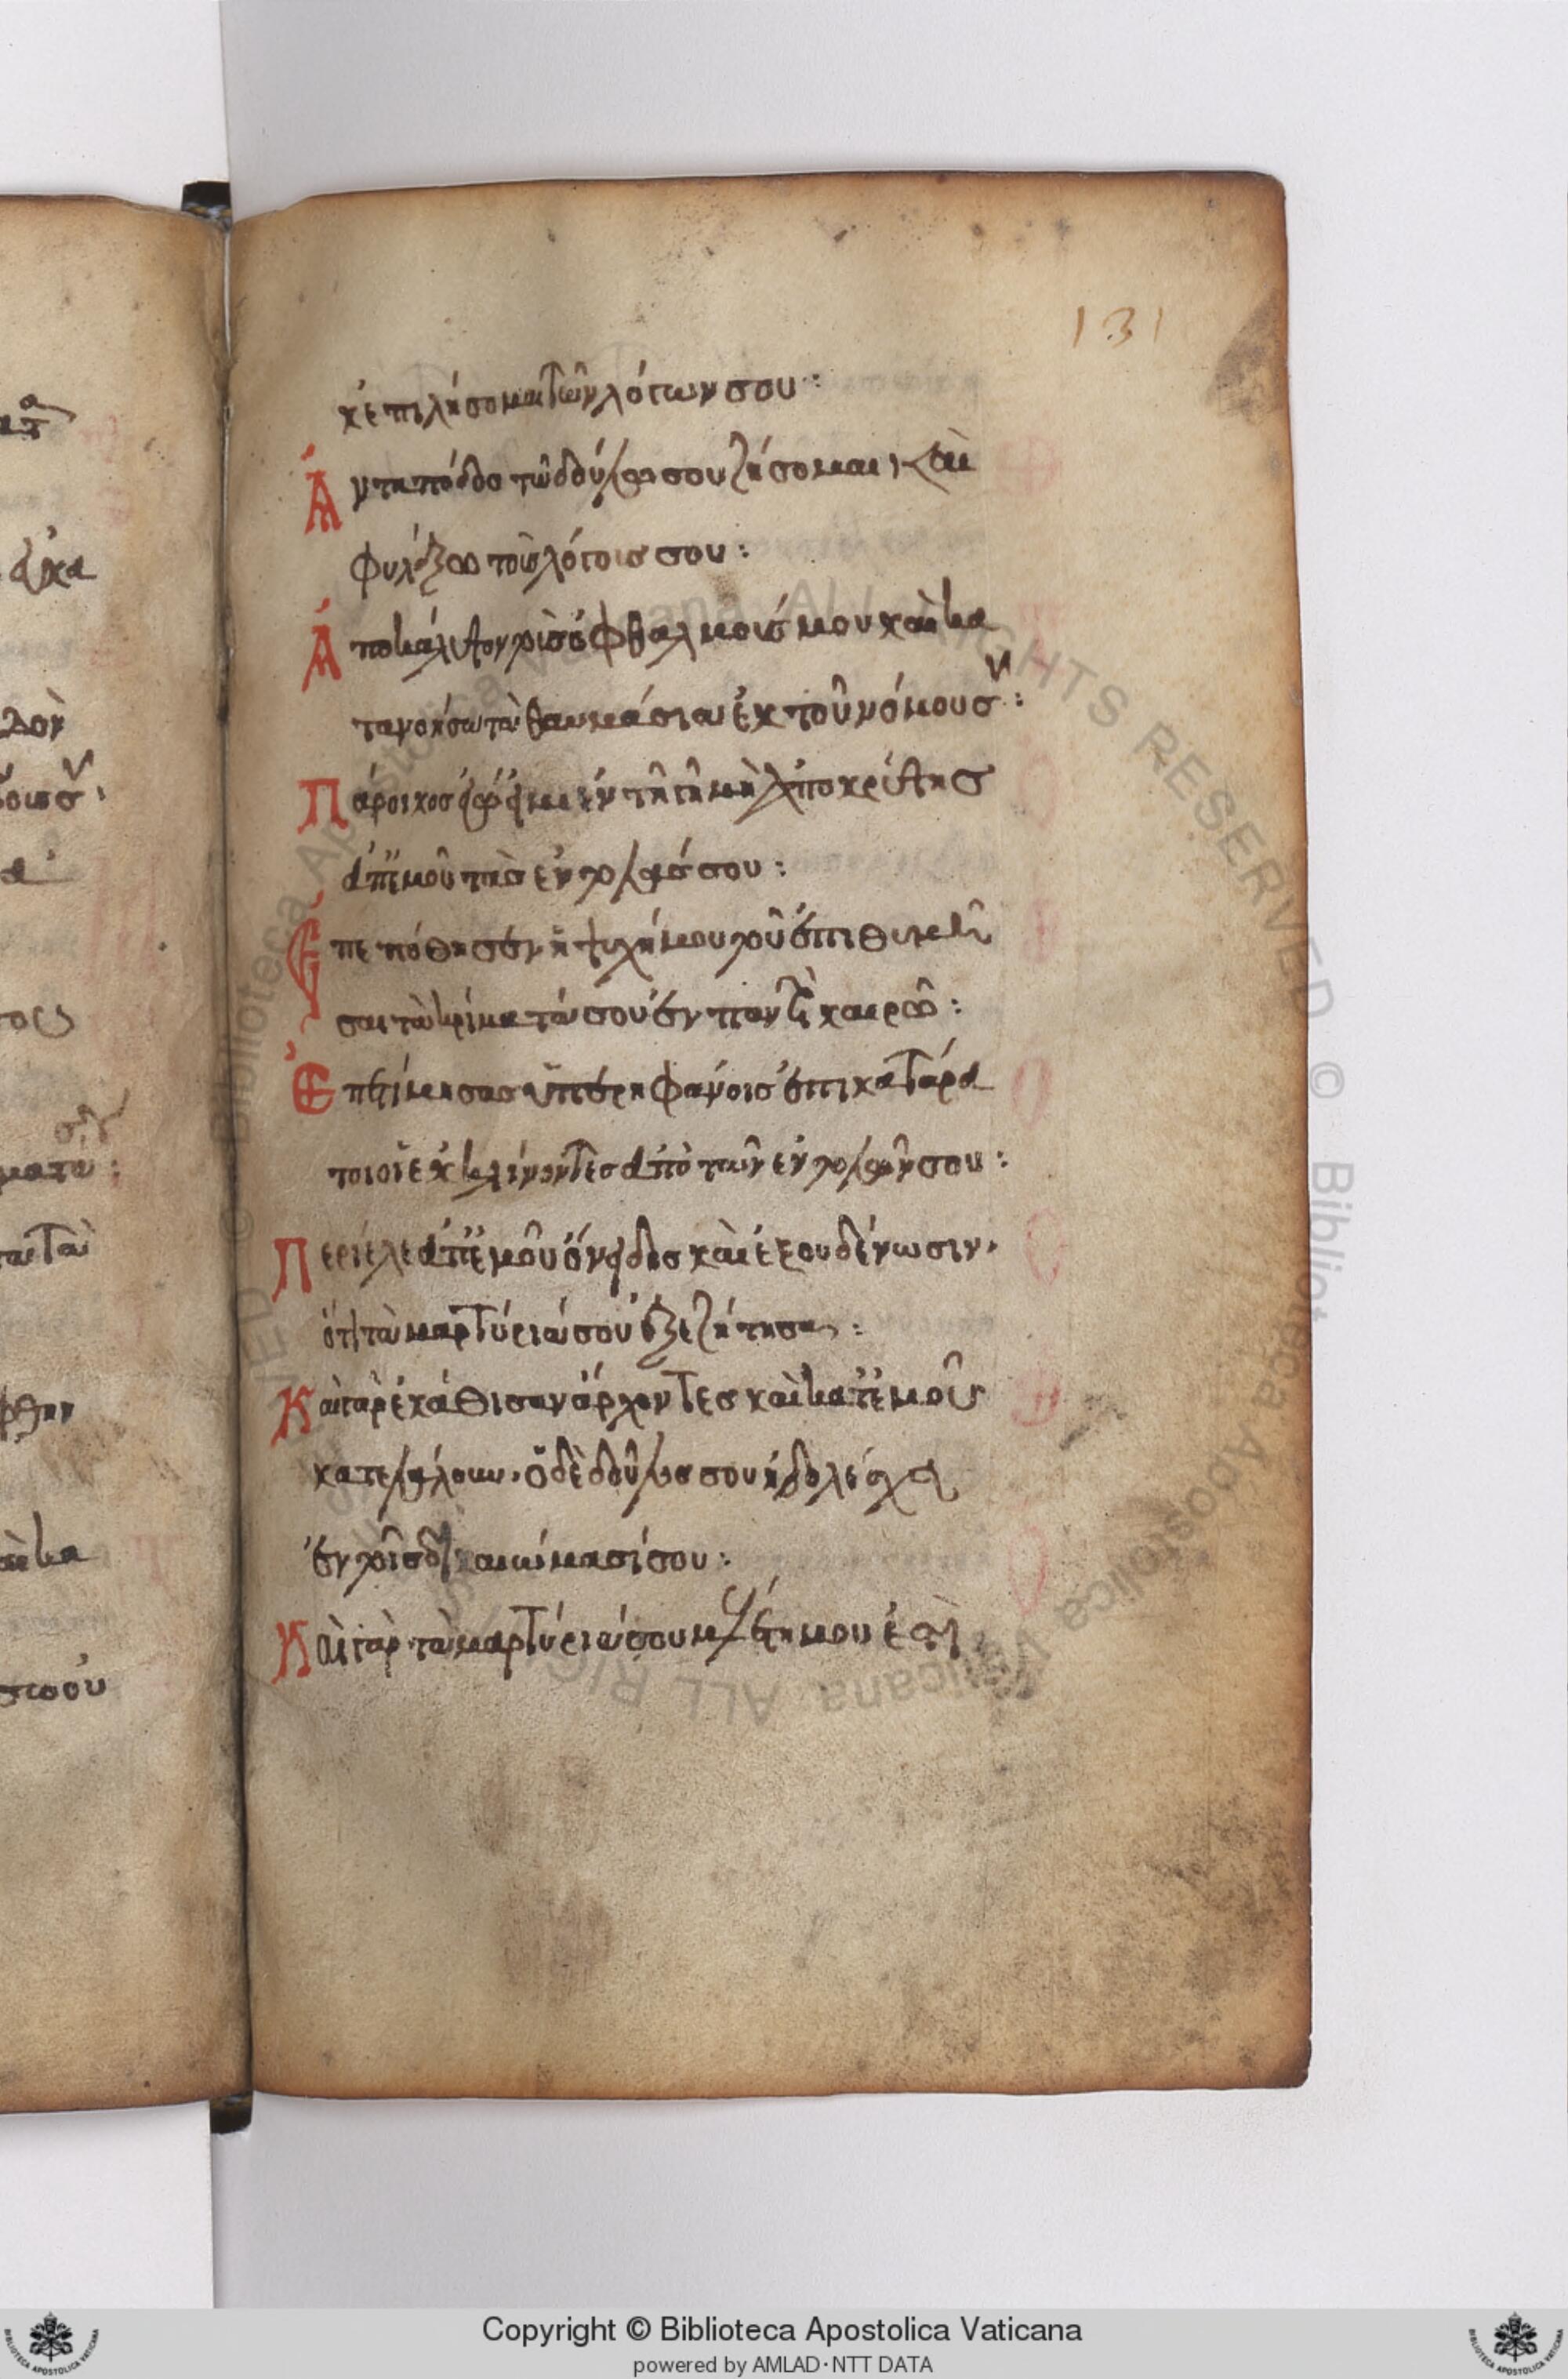 131
κ ἐπιλήσομαι τῶν λόγων σου :
Ἀνταπόδος τῶ δούλω σου ζήσομαι καὶ
φυλάξω τοὺς λόγους σου :
Ἀποκάλυψον τοὺς ὀφθαλμούς μου καὶ κα
τανοήσω τὰ θαυμάσια ἐκ τοῦ νόμου σου :
Πάροικος ἐγώ εἰμι ἐν τῆ γῆ μὴ ἀποκρύψης
ἀπ' ἐμοῦ τὰς ἐντολάς σου :
Ἐπεπόθησεν ἡ ψυχή μου τοῦ ἐπιθυμεῖ
σαι τὰ κρίματά σου ἐν παντὶ καιρῶ :
Ἐπετίμησας ὑπερηφάνοις ἐπικατάρα
τοι οἱ ἐκκλίνοντες ἀπὸ τῶν ἐντολῶν σου :
Περίελε ἀπ' ἐμοῦ ὄνειδος καὶ ἐξουδένωσιν,
ὅτι τὰ μαρτύριά σου ἐξεζήτησα :
Καὶ γὰρ ἐκάθισαν ἄρχοντες καὶ κατ' ἐμοῦ
κατελάλουν, ὁ δὲ δοῦλος σου ἠδολέσχει
ἐν τοῖς δικαιώμασί σου :
Καὶ γὰρ τὰ μαρτύριά σου μελέτη μου ἐστὶ
Copyright © Biblioteca Apostolica Vaticana
powered by AMLAD·NTT DATA